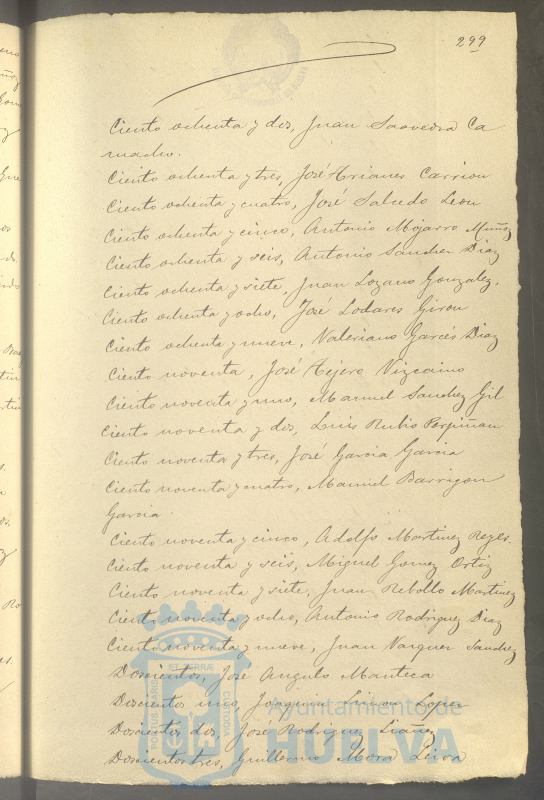 299
Ciento ochenta y dos, Juan Saavedra Ca
macho.
Ciento ochenta y tres, José Arianes Carrion
Ciento ochenta y cuatro, José Salcedo Leon
Ciento ochenta y cinco, Antonio Mojarro Muñoz
Ciento ochenta y seis, Antonio Sanchez Diaz
Ciento ochenta y siete, Juan Lozano Gonzalez.
Ciento ochenta y ocho, José Lodares Giron
Ciento ochenta y nueve, Valeriano Garcés Diaz
Ciento noventa, José Tejero Vizcaino
Ciento noventa y uno, Manuel Sanchez Gil
Ciento noventa y dos, Luis Rubio Perpiñan
Ciento noventa y tres, José Garcia Garcia
Ciento noventa y cuatro, Manuel Barrigon
Garcia.
Ciento noventa y cinco, Adolfo Martinez Reyes.
Ciento noventa y seis, Miguel Gomez Ortiz
Ciento noventa y siete, Juan Rebollo Martinez
Ciento noventa y ocho, Antonio Rodriguez Diaz
Ciento noventa y nueve, Juan Vazquez Sanchez
Doscientos, José Angulo Manteca
Doscientos uno, Joaquin Lopez
Doscientos dos, José Rodriguez
Doscientos tres, Guillermo Mora
PORTUS MARIS ET TERRÆ CUSTODIA
Ayuntamiento de
HUELVA